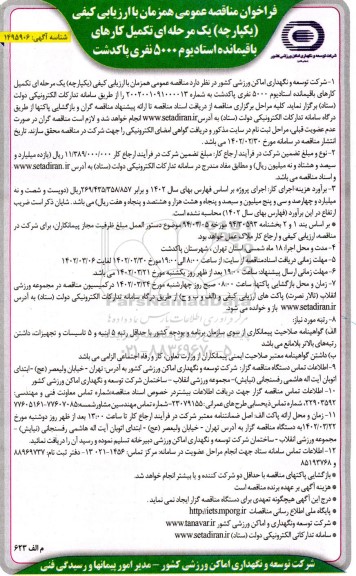 فراخوان مناقصه عمومی همزمان با ارزیابی کیفی
(یکپارچه) یک مرحله ای تکمیل کارهای
باقیمانده استادیوم ۵۰۰۰ نفری پاکدشت
شناسه آگهی: ۱۴۹۵۹۰۶
۱- شرکت توسعه و نگهداری اماکن ورزشی کشور در نظر دارد مناقصه عمومی همزمان با ارزیابی کیفی (یکپارچه) یک مرحله ای تکمیل
کارهای باقیمانده استادیوم ۵۰۰۰ نفری پاکدشت به شماره را از طریق سامانه تدارکات الکترونیکی دولت
(ستاد) برگزار نماید. کلیه مراحل برگزاری مناقصه از دریافت اسناد مناقصه تا ارائه پیشنهاد مناقصه گران و بازگشایی پاکتها از طریق
درگاه سامانه تدارکات الکترونیکی دولت (ستاد) به آدرس www.setadiran.ir انجام خواهد شد و لازم است مناقصه گران در صورت
عدم عضویت قبلی، مراحل ثبت نام در سایت مذکور و دریافت گواهی امضای الکترونیکی را جهت شرکت در مناقصه محقق سازند. تاریخ
انتشار مناقصه در سامانه مورخ ۱۴۰۲/۰۳/۰۲ می باشد.
۲- نوع و مبلغ تضمین شرکت در فرآیند ارجاع کار: مبلغ تضمین شرکت در فرآیند ارجاع کار ۱۱/۳۸۹/۰۰۰/۰۰۰ ریال (یازده میلیارد و
سیصد و هشتاد و نه میلیون ریال) و مطابق مفاد مندرج در سامانه تدارکات الکترونیکی دولت (ستاد) به آدرس www.setadiran.ir
و اسناد مناقصه می باشد.
۳- برآورد هزینه اجرای کار: اجرای پروژه بر اساس فهارس بهای سال ۱۴۰۲ و برابر ریال (دویست و شصت و نه
میلیارد و چهارصد و سی و پنج میلیون و سیصد و پنجاه و هشت هزار و هشتصد و پنجاه و هفت ریال) می باشد. شایان ذکر است ضریب
ارتفاع در این برآورد (فهارس بهای سال ۱۴۰۲) محاسبه نشده است.
مناقصه ارزیابی کیفی و ارجاع کار ملاک عمل خواهد بود.
۴- مدت و محل اجرا: ۱۸ ماه شمسی، استان تهران، شهرستان پاکدشت
۵- مهلت زمانی دریافت اسناد مناقصه از سایت: از ساعت ۸:۰۰ الی ۱۹:۰۰ مورخ ۱۴۰۲/۰۳/۰۲ لغایت ۱۴۰۲/۰۳/۰۶
۶- مهلت زمانی ارسال پیشنهاد: ساعت ۱۹:۰۰ بعد از ظهر روز یکشنبه مورخ ۱۴۰۲/۰۳/۲۱
۷- زمان و محل بازگشایی پاکتها: ساعت ۰۸:۰۰ صبح روز چهارشنبه مورخ ۱۴۰۲/۰۳/۲۴ در کمیسیون مناقصه در مجموعه ورزشی
انقلاب (تالار نصرت) پاکت های ارزیابی کیفی و الف و ب و ج) از طریق درگاه سامانه تدارکات الکترونیکی دولت (ستاد) به آدرس
www.setadiran.ir باز و خوانده می شود.
۸- رتبه مورد نیاز:
الف) گواهینامه صلاحیت پیمانکاری از سوی سازمان برنامه و بودجه کشور با حداقل رتبه ۵ ابنیه و ۵ تاسیسات و تجهیزات، داشتن
رتبه‌های بالاتر بلامانع می باشد
ب) داشتن گواهینامه معتبر صلاحیت ایمنی پیمانکاران از وزارت تعاون، کار و رفاه اجتماعی الزامی می باشد
۹- اطلاعات تماس دستگاه مناقصه گزار: شرکت توسعه و نگهداری اماکن ورزشی کشور به آدرس: تهران - خیابان ولیعصر (عج) - ابتدای
اتوبان آیت اله هاشمی رفسنجانی (نیایش) - مجموعه ورزشی انقلاب - ساختمان شرکت توسعه و نگهداری اماکن ورزشی کشور
۱۰- اطلاعات تماس دستگاه مناقصه گزار جهت دریافت اطلاعات بیشتر در خصوص اسناد مناقصه: شماره تماس معاونت فنی و مهندسی:
۱۱- زمان و محل ارائه پاکت الف: اصل ضمانتنامه معتبر شرکت در فرآیند ارجاع کار تا ساعت ۱۳:۰۰ بعد از ظهر روز دوشنبه مورخ
۱۴۰۲/۰۳/۲۲ به دستگاه مناقصه گزار به آدرس تهران - خیابان ولیعصر (عج) - ابتدای اتوبان آیت اله هاشمی رفسنجانی (نیایش) -
مجموعه ورزشی انقلاب - ساختمان شرکت توسعه و نگهداری اماکن ورزشی دبیرخانه تسلیم نموده و رسید آن را دریافت نمائید.
۱۲- اطلاعات تماس سامانه ستاد جهت انجام مراحل عضویت در سامانه: مرکز تماس: ۱۴۵۶-۰۲۱ ۱۳- دفتر ثبت نام: ۸۸۹۶۹۷۳۷
و ۸۵۱۹۳۷۶۸
• بازگشایی پاکتهای مناقصه با حداقل دو شرکت کننده و یا بیشتر انجام خواهد شد.
• هزینه آگهی بر عهده برنده مناقصه است
• درج این آگهی هیچگونه تعهدی برای دستگاه مناقصه گزار ایجاد نمی نماید.
• پایگاه ملی اطلاع رسانی مناقصات http://iets.mporg.ir
• شرکت توسعه ونگهداری و اماکن ورزشی کشور www.tanavar.ir
• سامانه تدارکاتی الکترونیکی دولت (ستاد) www.setadiran.ir
م الف ۶۲۳
شرکت توسعه و نگهداری اماکن ورزشی کشور - مدیر امور پیمانها و رسیدگی فنی